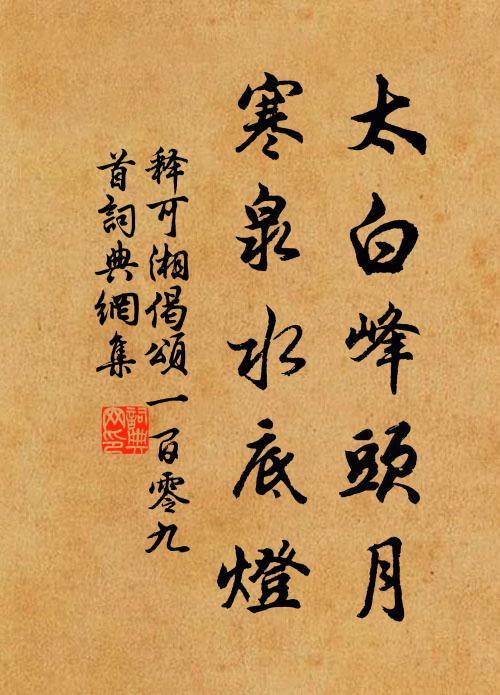 太白峰頭月
寒泉水底燈
释可湘偈頌一百零九
首詞典網集
詞典
网印